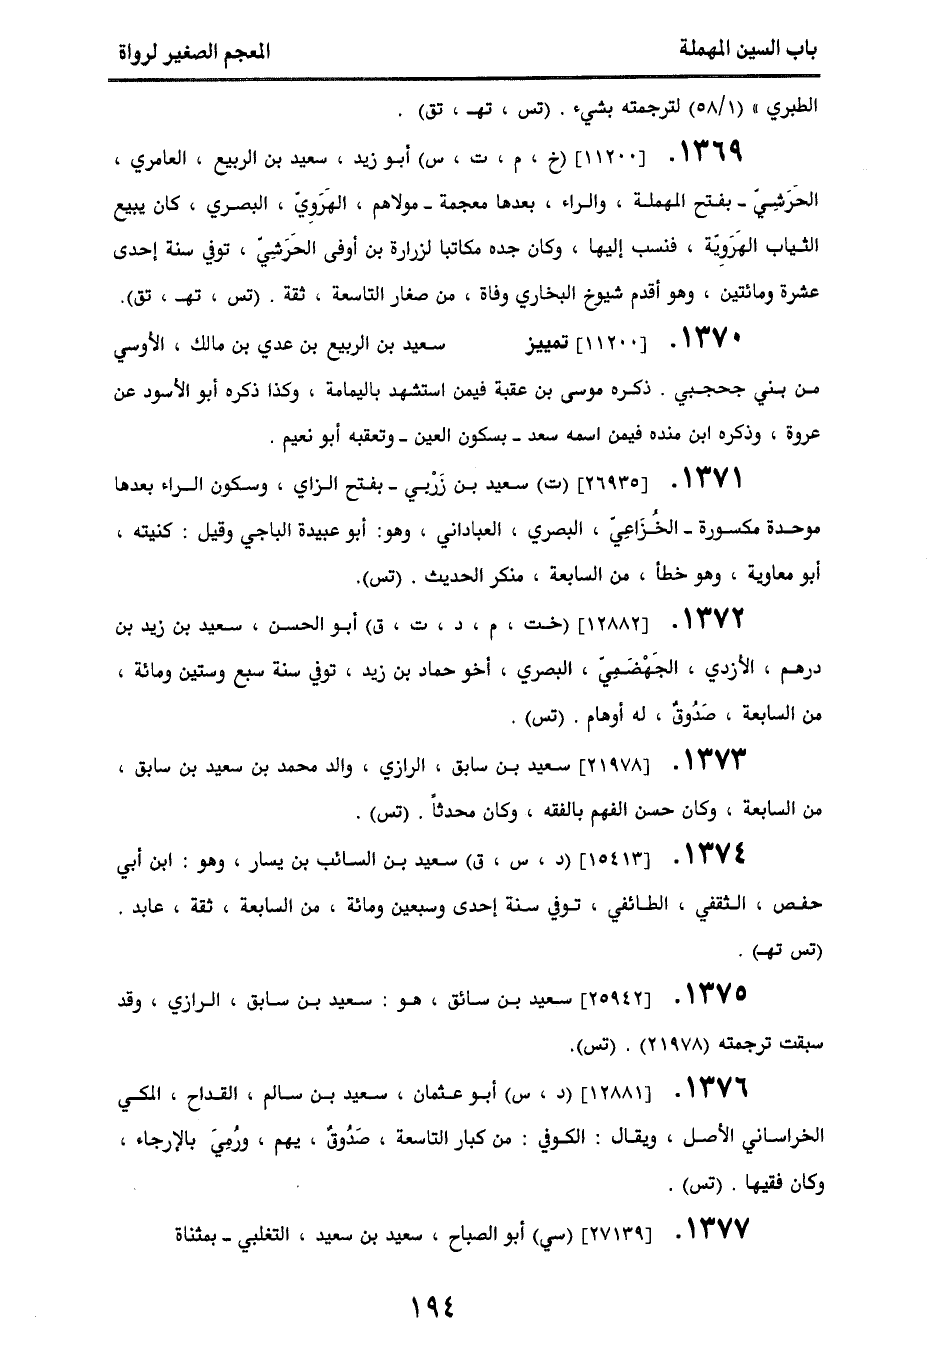 باب السين المهملة المعجم الصغير لرواة
الطبري » (٥٨/١) لترجمته بشيء . (تس ، تهـ ، تق) .
١٣٦٩. [١١٢٠٠] (خ ، م ، ت ، س) أبو زيد ، سعيد بن الربيع ، العامري ،
الحَرَشِيّ ـ بفتح المهملة ، والراء ، بعدها معجمة ـ مولاهم ، الهَرَوِيّ ، البصري ، كان يبيع
الثياب الهَرَوِيّة ، فنسب إليها ، وكان جده مكاتبا لزرارة بن أوفى الحَرَشِيّ ، توفي سنة إحدى
عشرة ومائتين ، وهو أقدم شيوخ البخاري وفاة ، من صغار التاسعة ، ثقة . (تس ، تهـ ، تق).
١٣٧٠. [١١٢٠٠] تمييز سعيد بن الربيع بن عدي بن مالك ، الأوسي
من بني جحجبي . ذكره موسى بن عقبة فيمن استشهد باليمامة ، وكذا ذكره أبو الأسود عن
عروة ، وذكره ابن منده فيمن اسمه سعد ـ بسكون العين ـ وتعقبه أبو نعيم .
١٣٧١. [٢٦٩٣٥] (ت) سعيد بن زَرْبي ـ بفتح الزاي ، وسكون الراء بعدها
موحدة مكسورة ـ الخُزَاعِيّ ، البصري ، العباداني ، وهو: أبو عبيدة الباجي وقيل : كنيته ،
أبو معاوية ، وهو خطأ ، من السابعة ، منكر الحديث . (تس).
١٣٧٢. [١٢٨٨٢] (خت ، م ، د ، ت ، ق) أبو الحسن ، سعيد بن زيد بن
درهم ، الأزدي ، الجَهْضَمِيّ ، البصري ، أخو حماد بن زيد ، توفي سنة سبع وستين ومائة ،
من السابعة ، صَدُوقٌ ، له أوهام . (تس) .
١٣٧٣. [٢١٩٧٨] سعيد بن سابق ، الرازي ، والد محمد بن سعيد بن سابق ،
من السابعة ، وكان حسن الفهم بالفقه ، وكان محدثاً . (تس) .
١٣٧٤. [١٥٤١٣] (د ، س ، ق) سعيد بن السائب بن يسار ، وهو : ابن أبي
حفص ، الثقفي ، الطائفي ، توفي سنة إحدى وسبعين ومائة ، من السابعة ، ثقة ، عابد .
(تس تهـ) .
١٣٧٥. [٢٥٩٤٢] سعيد بن سائق ، هو : سعيد بن سابق ، الرازي ، وقد
سبقت ترجمته (٢١٩٧٨) . (تس).
١٣٧٦. [١٢٨٨١] (د ، س) أبو عثمان ، سعيد بن سالم ، القداح ، المكي
الخراساني الأصل ، ويقال : الكوفي : من كبار التاسعة ، صَدُوقٌ ، يهم ، ورُمِيَ بالإرجاء ،
وكان فقيها . (تس) .
١٣٧٧. [٢٧١٣٩] (سي) أبو الصباح ، سعيد بن سعيد ، التغلبي ـ بمثناة
١٩٤